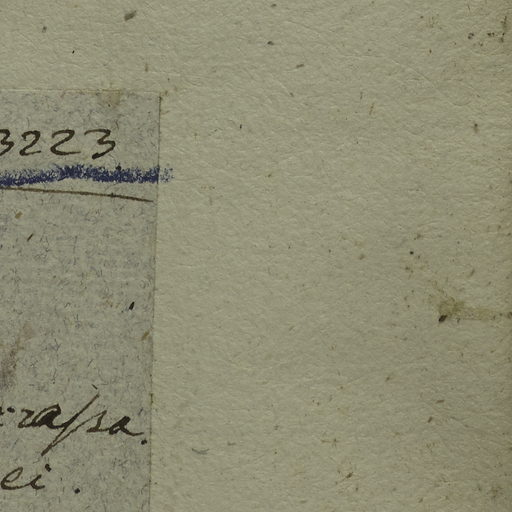 3223
crassa.
ei.